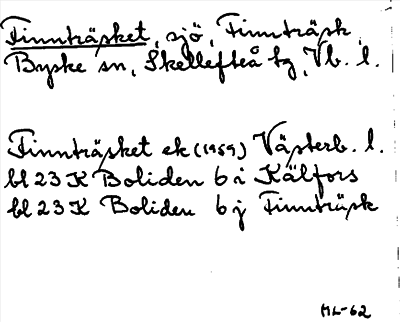 Finnträsket, sjö, Finnträsk
Byske sn, Skellefteå tg, Vb. l.
Finnträsket ek (1959) Västerb. l.
bl 23 K Boliden 6 i Kälfors
bl 23 K Boliden 6 j Finnträsk
ML-62